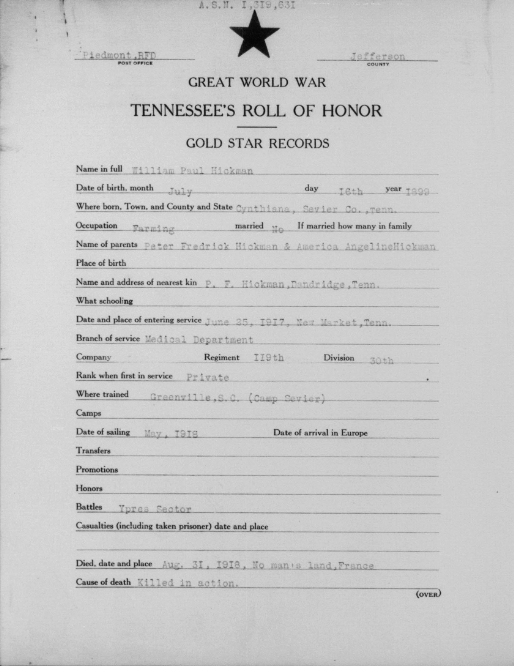 A.S.N. I,319,631
Piedmont,RFD Jefferson
POST OFFICE COUNTY
GREAT WORLD WAR
TENNESSEE'S ROLL OF HONOR
GOLD STAR RECORDS
Name in full William Paul Hickman
Date of birth, month July day 16th year 1899
Where born, Town, and County and State Cynthiana, Sevier Co.,Tenn.
Occupation Farming married No If married how many in family
Name of parents Peter Fredrick Hickman & America AngelineHickman
Place of birth
Name and address of nearest kin P. F. Hickman,Dandridge,Tenn.
What schooling
Date and place of entering service June 25, I9I7, New Market,Tenn.
Branch of service Medical Department
Company Regiment II9th Division 30th
Rank when first in service Private
Where trained Greenville,S.C. (Camp Sevier)
Camps
Date of sailing May, I9I8 Date of arrival in Europe
Transfers
Promotions
Honors
Battles Ypres Sector
Casualties (including taken prisoner) date and place
Died, date and place Aug. 31, I9I8, No man's land,France
Cause of death Killed in action.
(OVER)